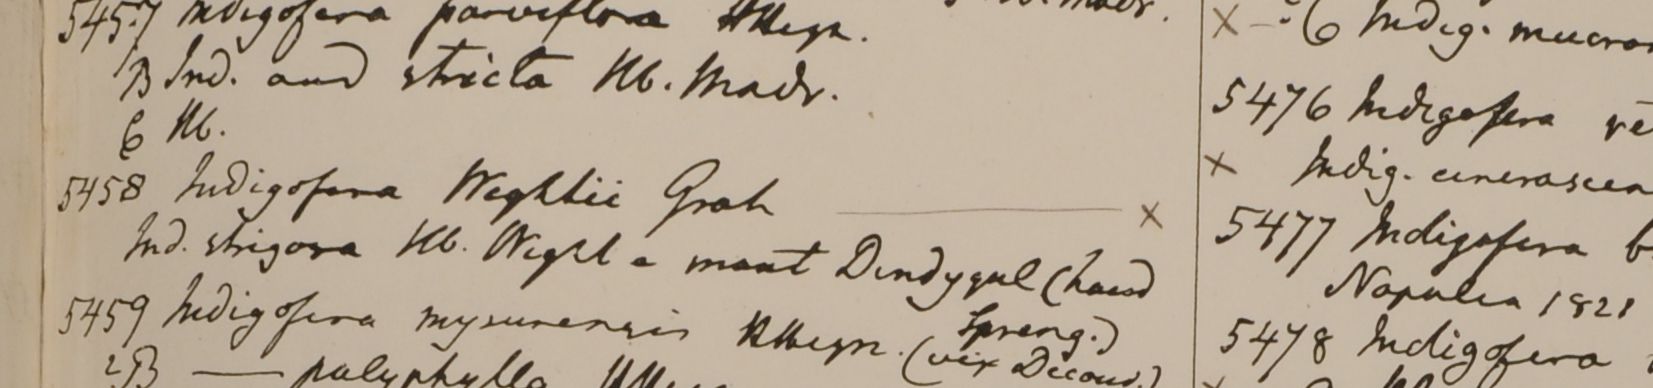 5457 Indigofera parviflora HHeyn.
B Ind. and stricta Hb. Madr.
6 Hb.
5458 Indigofera Wightii Grah x
Ind. strigosa Hb. Wight a mont Dindygul (haud
Spreng.)
5459 Indigofera mysurensis HHeyn. (vix Decand.)
2B — polyphylla
x - 6 Indig.
5476 Indigofera
x Indig. cinerascen
5477 Indigofera
Napalia 1821
5478 Indigofera